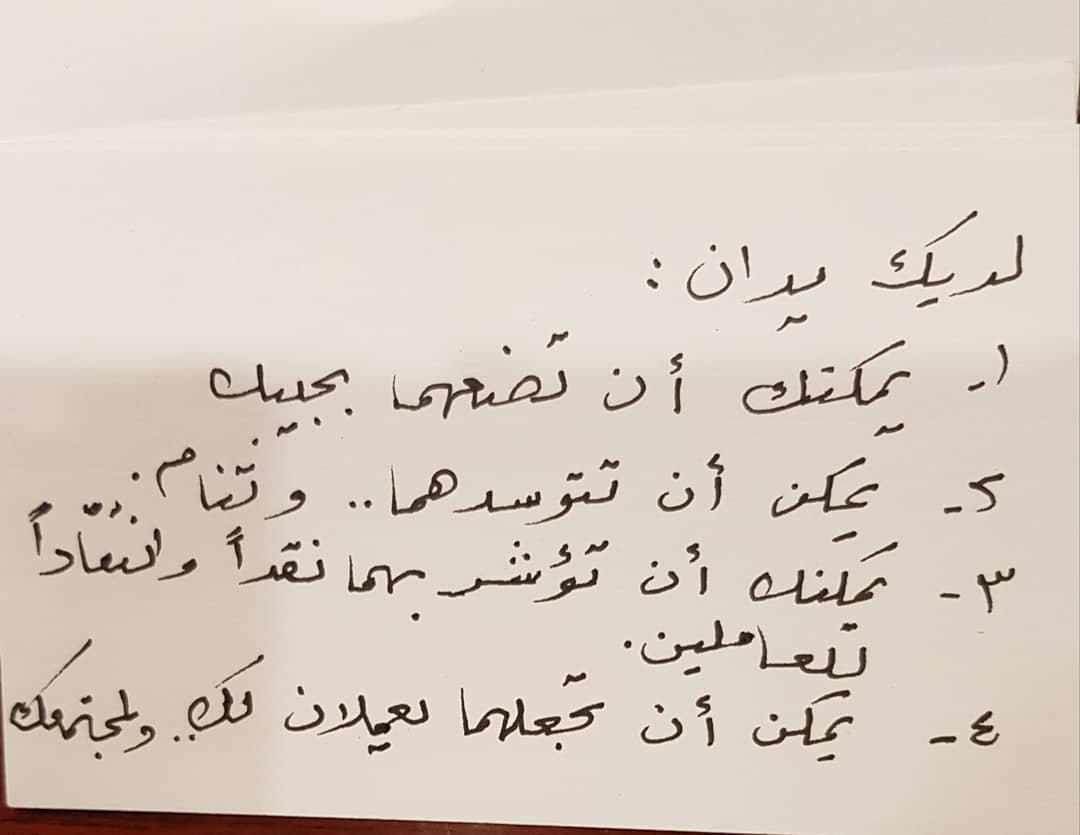 لديك يدان :
١- يمكنك أن تضعهما بجيبك
٢- يمكن أن تتوسدهما .. وتنام .
٣- يمكنك أن تؤشر بهما نقداً وانتقاداً
للعاملين .
٤- يمكن أن تجعلهما يعملان لك .. ولمجتمعك